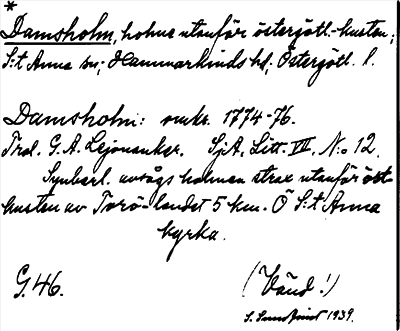 *
Damsholm, holme utanför östergötl.-kusten;
S:t Anna sn; Hammarkinds hd; Östergötl. l.
Damsholm: omkr. 1774-76.
Trol. G. A. Lejonanker. SjA, Litt. VII, N:o 12.
Synbarl. avsågs holmen strax utanför öst-
kusten av Torö-landet 5 km. Ö S:t Anna
kyrka.
G. 46. (Vänd!)
S. 1939.